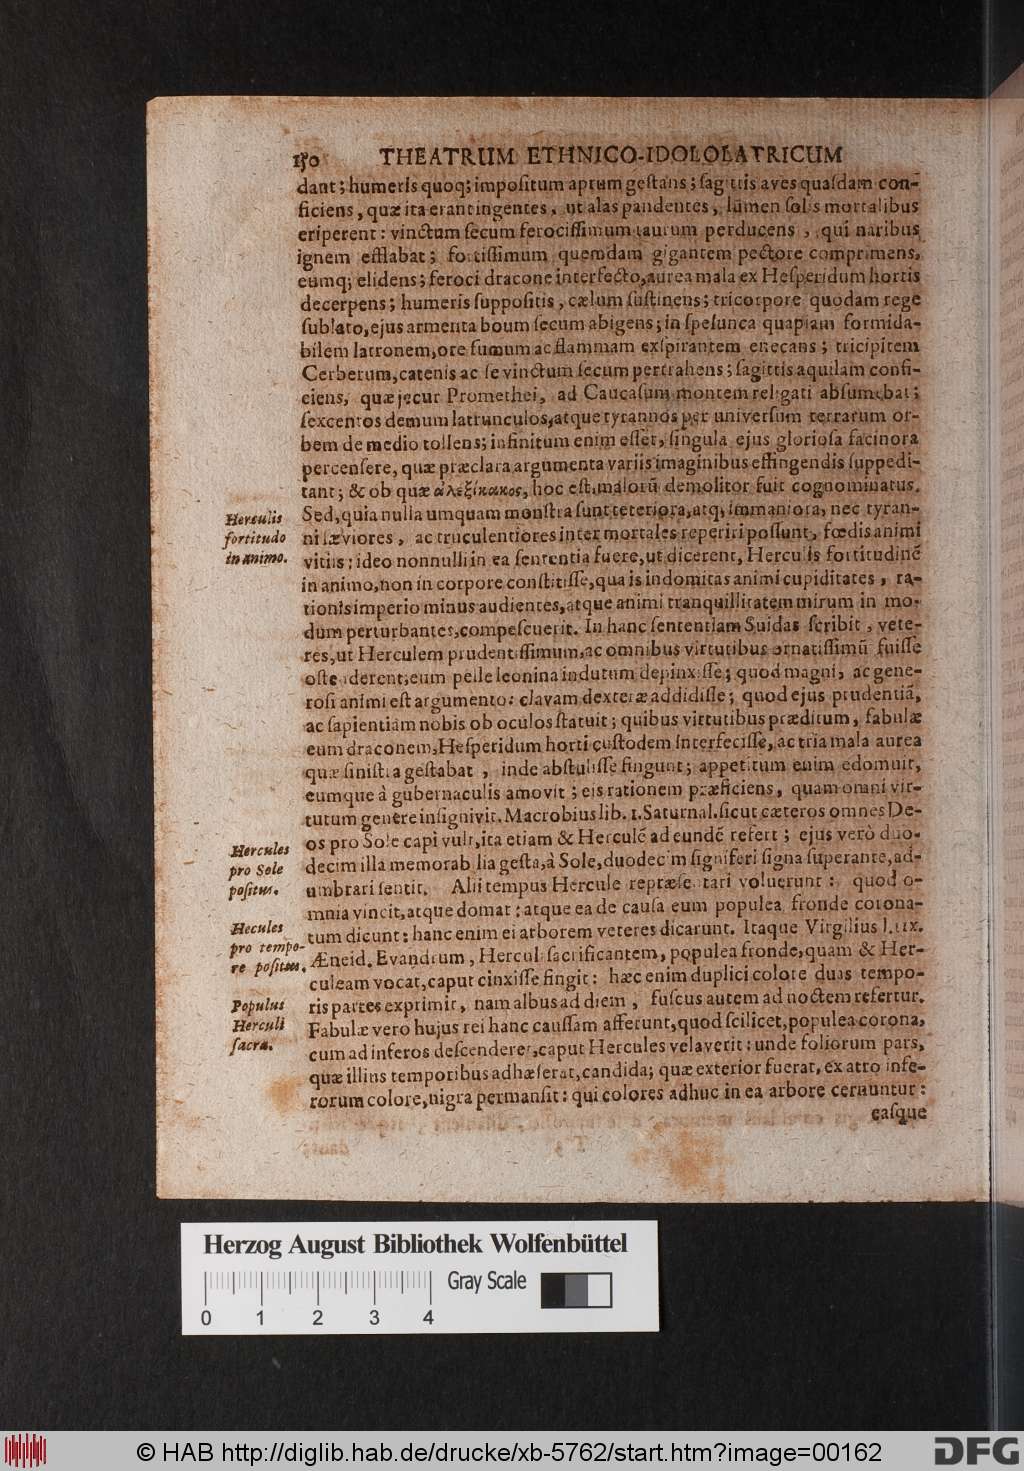 150 THEATRUM ETHNICO-IDOLOLATRICUM
dant; humeris quoq; impoſitum aprum geſtans; ſagittis aves quaſdam con-
ficiens, quæ ita erant ingentes, ut alas pandentes, lumen ſolis mortalibus
eriperent: vinctum ſecum ferociſſimum taurum perducens, qui naribus
ignem efflabat; fortiſſimum quemdam gigantem pectore comprimens,
eumq; elidens; feroci dracone interfecto, aurea mala ex Heſperidum hortis
decerpens; humeris ſuppoſitis, cælum ſuſtinens; tricorpore quodam rege
ſublato, ejus armenta boum ſecum abigens; in ſpelunca quapiam formida-
bilem latronem, ore fumum ac flammam exſpirantem enecans; tricipitem
Cerberum, catenis ac ſe vinctum ſecum pertrahens; ſagittis aquilam confi-
ciens, quæ jecur Promethei, ad Caucaſum montem religati abſumebat;
ſexcentos demum latrunculos, atque tyrannos per univerſum terrarum or-
bem de medio tollens; infinitum enim eſſet, ſingula ejus glorioſa facinora
percenſere, quæ præclara argumenta variis imaginibus effingendis ſuppedi-
tant; & ob quæ ἀλεξίκακος, hoc eſt, malorū demolitor fuit cognominatus.
Herculis fortitudo in animo.
Sed, quia nulla umquam monſtra ſunt teteriora, atq; immaniora, nec tyran-
ni ſæviores, ac truculentiores inter mortales reperiri poſſunt, fœdis animi
vitiis; ideo nonnulli in ea ſententia fuere, ut dicerent, Herculis fortitudinē
in animo, non in corpore conſtitiſſe, qua is indomitas animi cupiditates, ra-
tionis imperio minus audientes, atque animi tranquillitatem mirum in mo-
dum perturbantes, compeſcuerit. In hanc ſententiam Suidas ſcribit, vete-
res, ut Herculem prudentiſſimum, ac omnibus virtutibus ornatiſſimū fuiſſe
oſtenderent, eum pelle leonina indutum depinxiſſe; quod magni, ac gene-
roſi animi eſt argumento: clavam dexteræ addidiſſe; quod ejus prudentiā,
ac ſapientiam nobis ob oculos ſtatuit; quibus virtutibus præditum, fabulæ
eum draconem, Heſperidum horti cuſtodem interfeciſſe, ac tria mala aurea
quæ ſiniſtra geſtabat, inde abſtuliſſe fingunt; appetitum enim edomuit,
eumque à gubernaculis amovit; eis rationem præficiens, quam omni vir-
tutum genere inſignivit. Macrobius lib. 1. Saturnal. ſicut cæteros omnes De-
Hercules pro Sole poſitus.
os pro Sole capi vult, ita etiam & Herculē ad eundē refert; ejus verò duo-
decim illa memorabilia geſta, à Sole, duodecim ſigniferi ſigna ſuperante, ad-
umbrari ſentit. Alii tempus Hercule repræſentari voluerunt: quod o-
mnia vincit, atque domat: atque ea de cauſa eum populea fronde corona-
Hecules pro tempo-
re poſitus.
tum dicunt: hanc enim ei arborem veteres dicarunt. Itaque Virgilius l. iix.
Æneid. Evandrum, Herculi ſacrificantem, populea fronde, quam & Her-
culeam vocat, caput cinxiſſe fingit: hæc enim duplici colore duas tempo-
Populus Herculi ſacra.
ris partes exprimit, nam albus ad diem, fuſcus autem ad noctem refertur.
Fabulæ vero hujus rei hanc cauſſam afferunt, quod ſcilicet, populea corona,
cum ad inferos deſcenderet, caput Hercules velaverit: unde foliorum pars,
quæ illius temporibus adhæſerat, candida; quæ exterior fuerat, ex atro infe-
rorum colore, nigra permanſit: qui colores adhuc in ea arbore cernuntur:
eaſque
Herzog August Bibliothek Wolfenbüttel
Gray Scale
0 1 2 3 4
© HAB http://diglib.hab.de/drucke/xb-5762/start.htm?image=00162
DFG